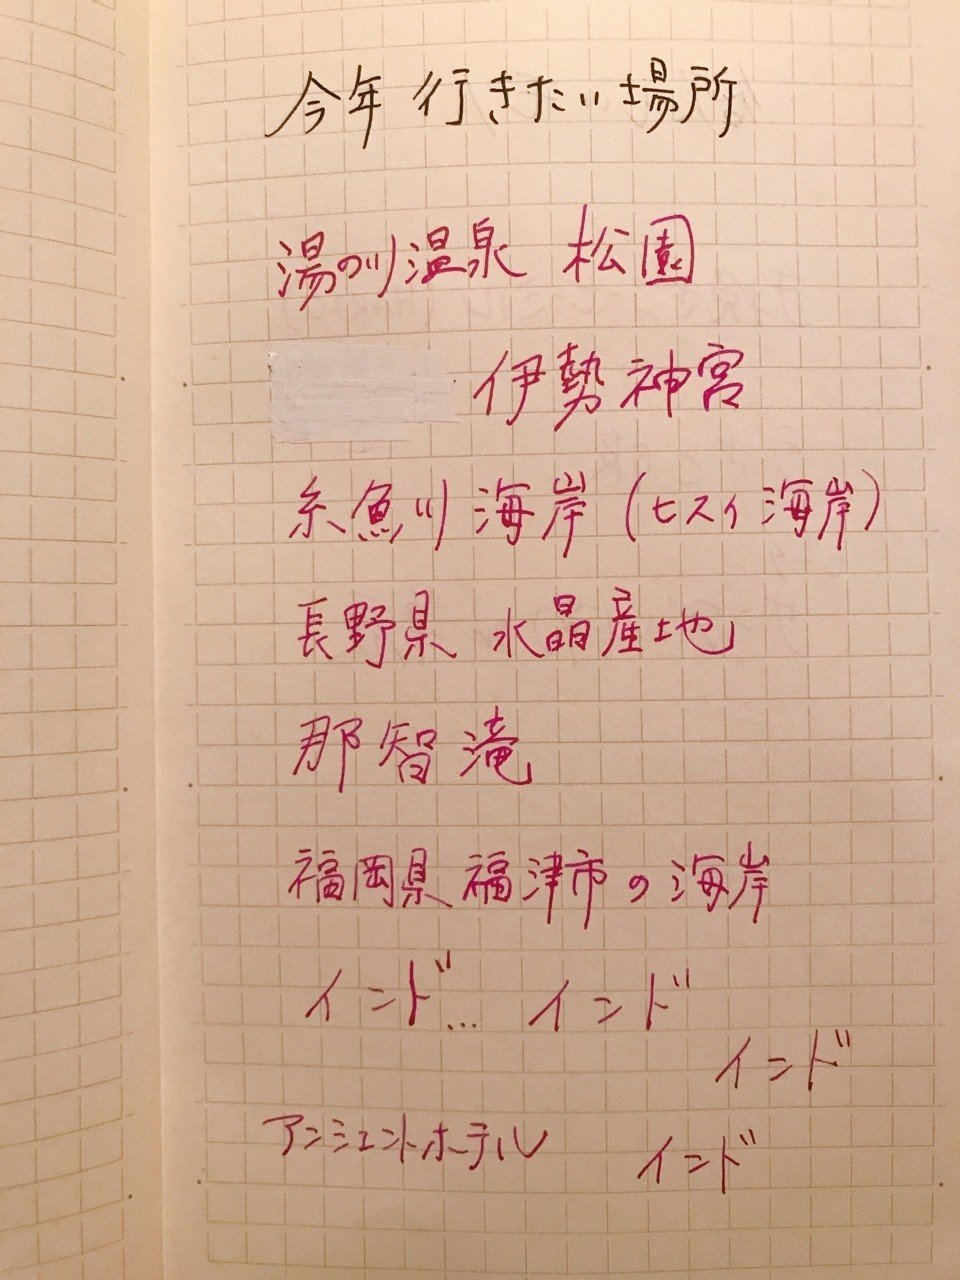 今年 行きたい場所
湯の川温泉 松園
伊勢神宮
糸魚川 海岸 (ヒスイ 海岸)
長野県 水晶産地
那智滝
福岡県 福津市の海岸
インド... インド
インド
アンシェントホテル インド